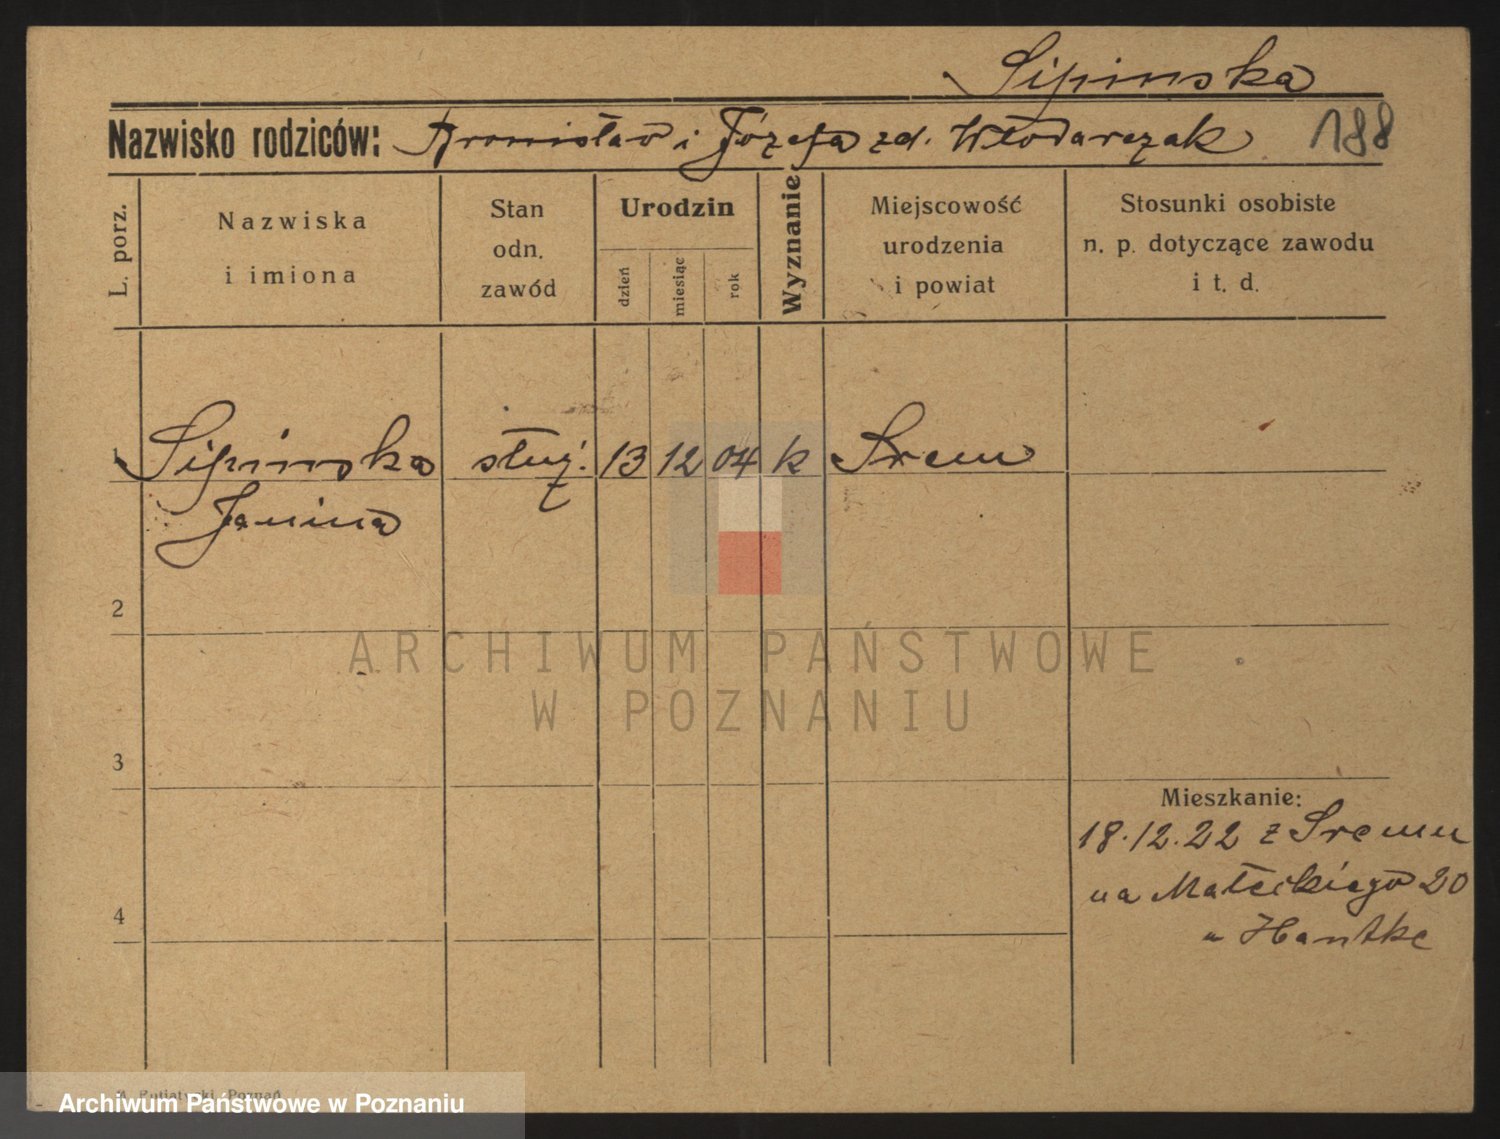 Sipinska
Nazwisko rodziców: Bronisław i Józefa zd. Włodarczak 188
L. porz.
Nazwiska
i imiona
Stan
odn.
zawód
Urodzin
dzień
miesiąc
rok
Wyznanie
Miejscowość
urodzenia
i powiat
Stosunki osobiste
n. p. dotyczące zawodu
i t. d.
1 Sipinska służ. 13 12 04 k Srem
Janina
2
ARCHIWUM PAŃSTWOWE
W POZNANIU
3
Mieszkanie:
18.12.22 z Sremu
na Małeckiego 20
u Hantke
4
Poznań
Archiwum Państwowe w Poznaniu